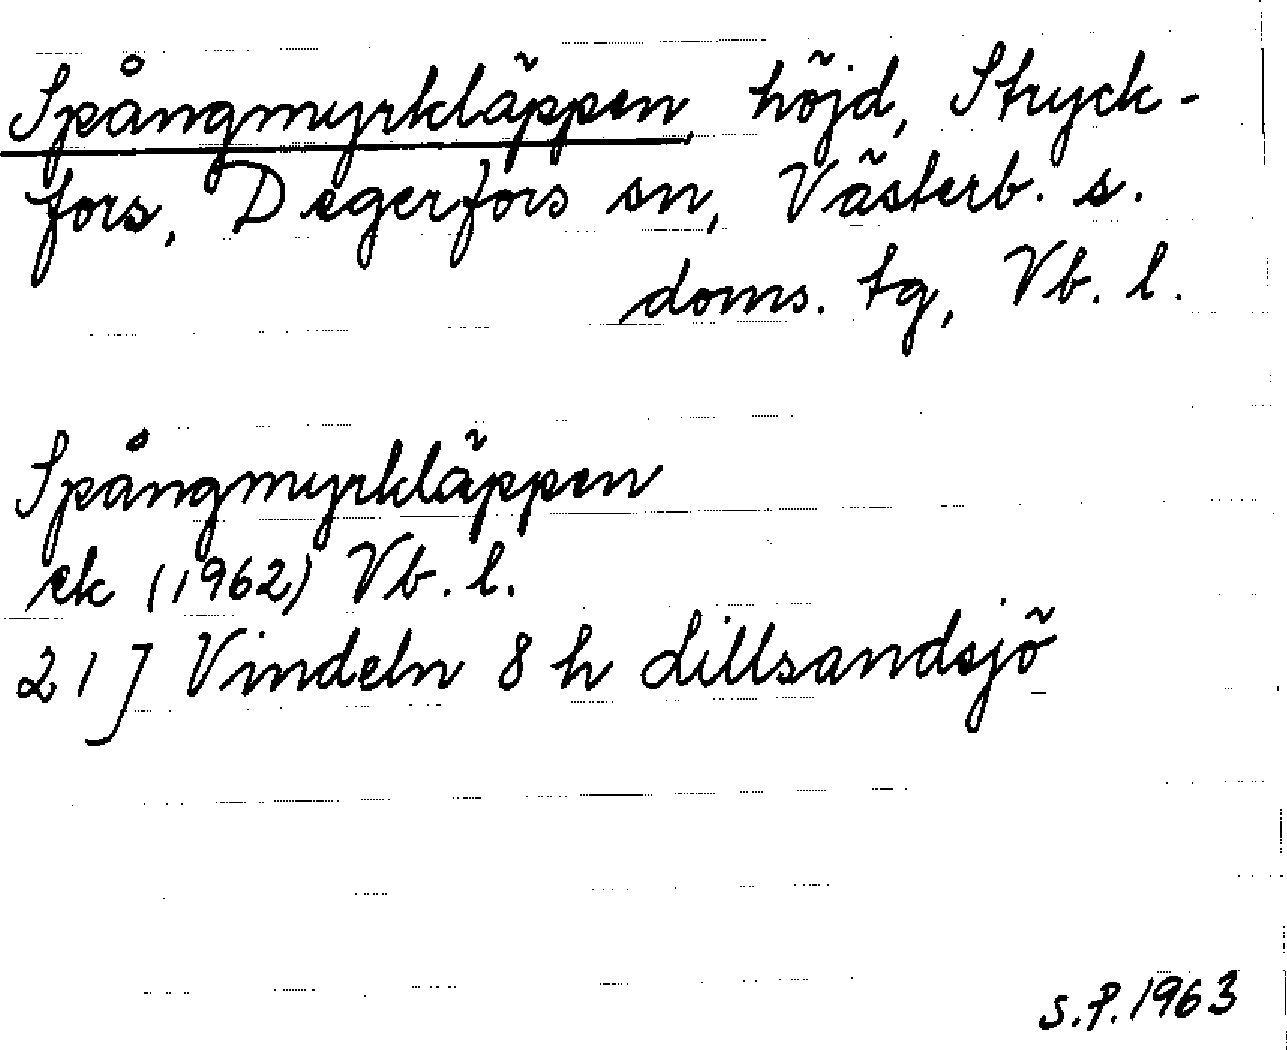 Spångmyrkläppen, höjd, Stryck-
fors, Degerfors sn, Västerb. s.
doms. tg, Vb. l.
Spångmyrkläppen
ek (1962) Vb. l.
21 J Vindeln 8 h Lillsandsjö
S.P. 1963